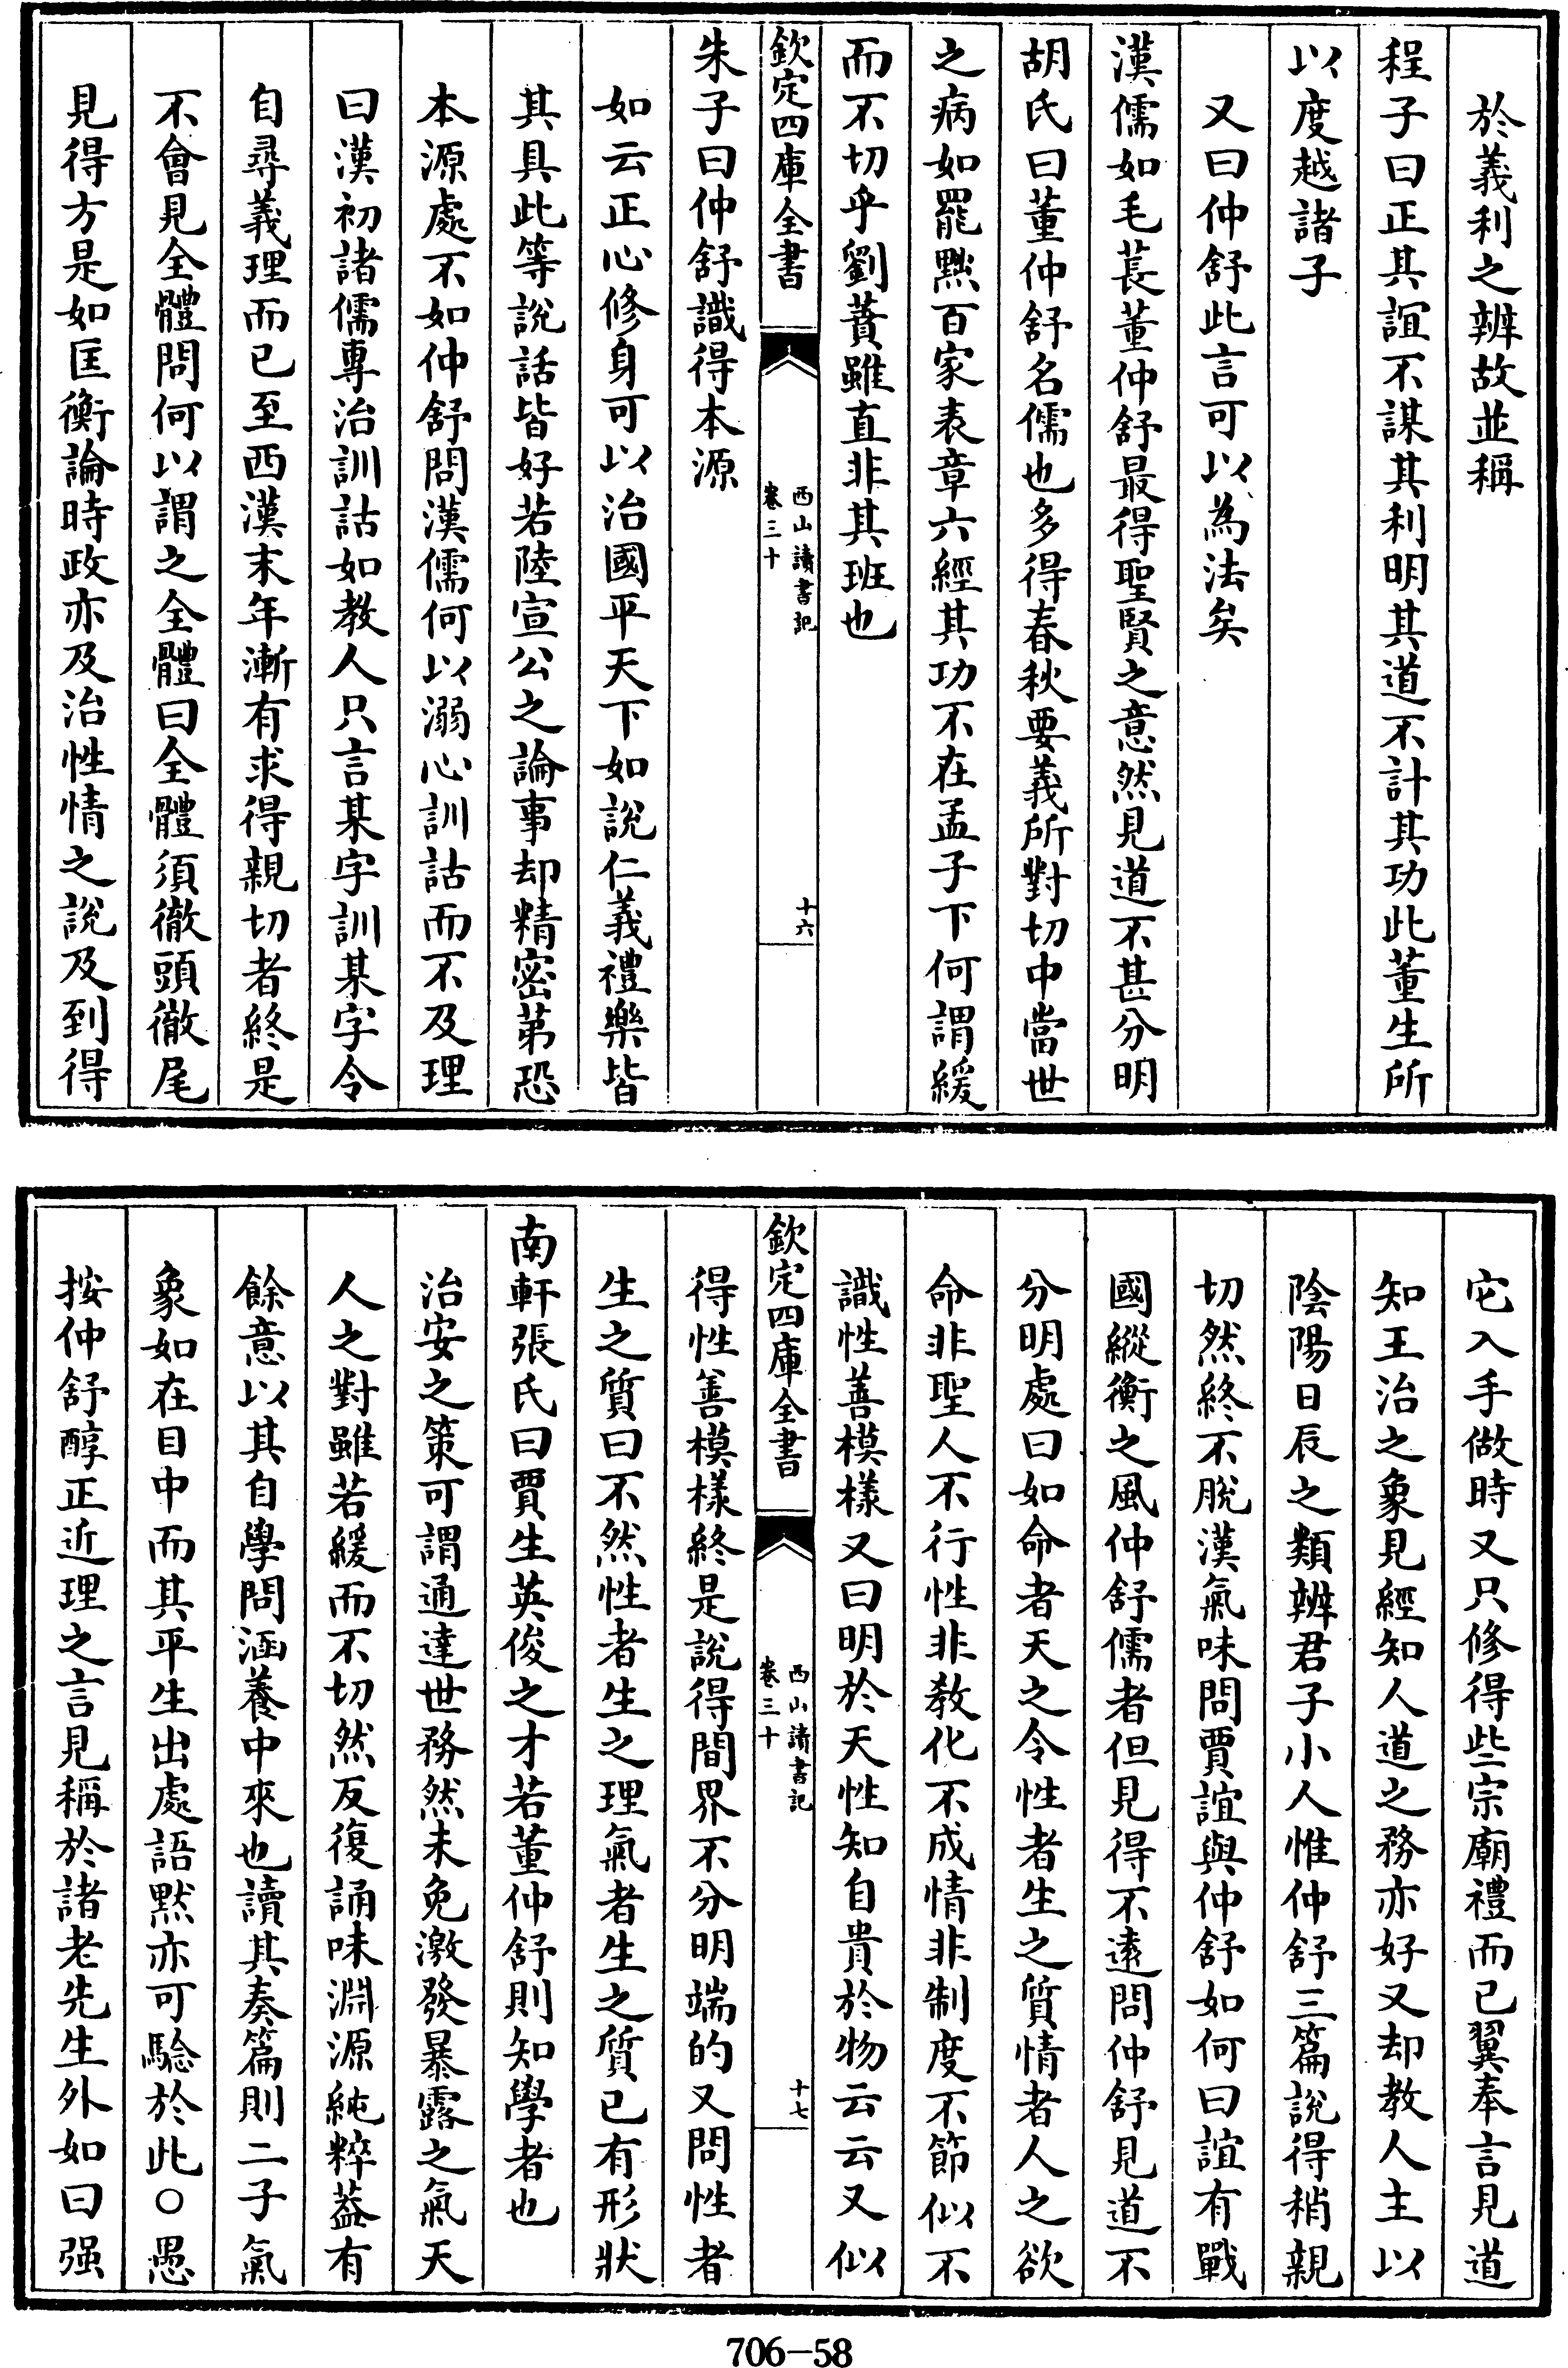 於義利之辨故並稱
程子曰正其誼不謀其利明其道不計其功此董生所
以度越諸子
又曰仲舒此言可以為法矣
漢儒如毛萇董仲舒最得聖賢之意然見道不甚分明
胡氏曰董仲舒名儒也多得春秋要義所對切中當世
之病如罷黜百家表章六經其功不在孟子下何謂緩
而不切乎劉蕡雖直非其班也
欽定四庫全書
西山讀書記
卷三十
十六
朱子曰仲舒識得本源
如云正心修身可以治國平天下如說仁義禮樂皆
其具此等說話皆好若陸宣公之論事却精密第恐
本源處不如仲舒問漢儒何以溺心訓詁而不及理
曰漢初諸儒專治訓詁如教人只言某字訓某字令
自尋義理而已至西漢末年漸有求得親切者終是
不會見全體問何以謂之全體曰全體須徹頭徹尾
見得方是如匡衡論時政亦及治性情之說及到得
它入手做時又只修得些宗廟禮而已翼奉言見道
知王治之象見經知人道之務亦好又却教人主以
陰陽日辰之類辨君子小人惟仲舒三篇說得稍親
切然終不脫漢氣味問賈誼與仲舒如何曰誼有戰
國縱衡之風仲舒儒者但見得不遠問仲舒見道不
分明處曰如命者天之令性者生之質情者人之欲
命非聖人不行性非教化不成情非制度不節似不
識性善模樣又曰明於天性知自貴於物云云又似
欽定四庫全書
西山讀書記
卷三十
十七
得性善模樣終是說得間界不分明端的又問性者
生之質曰不然性者生之理氣者生之質已有形狀
南軒張氏曰賈生英俊之才若董仲舒則知學者也
治安之策可謂通達世務然未免激發暴露之氣天
人之對雖若緩而不切然反復誦味淵源純粹葢有
餘意以其自學問涵養中來也讀其奏篇則二子氣
象如在目中而其平生出處語默亦可驗於此○愚
按仲舒醇正近理之言見稱於諸老先生外如曰强
706-58